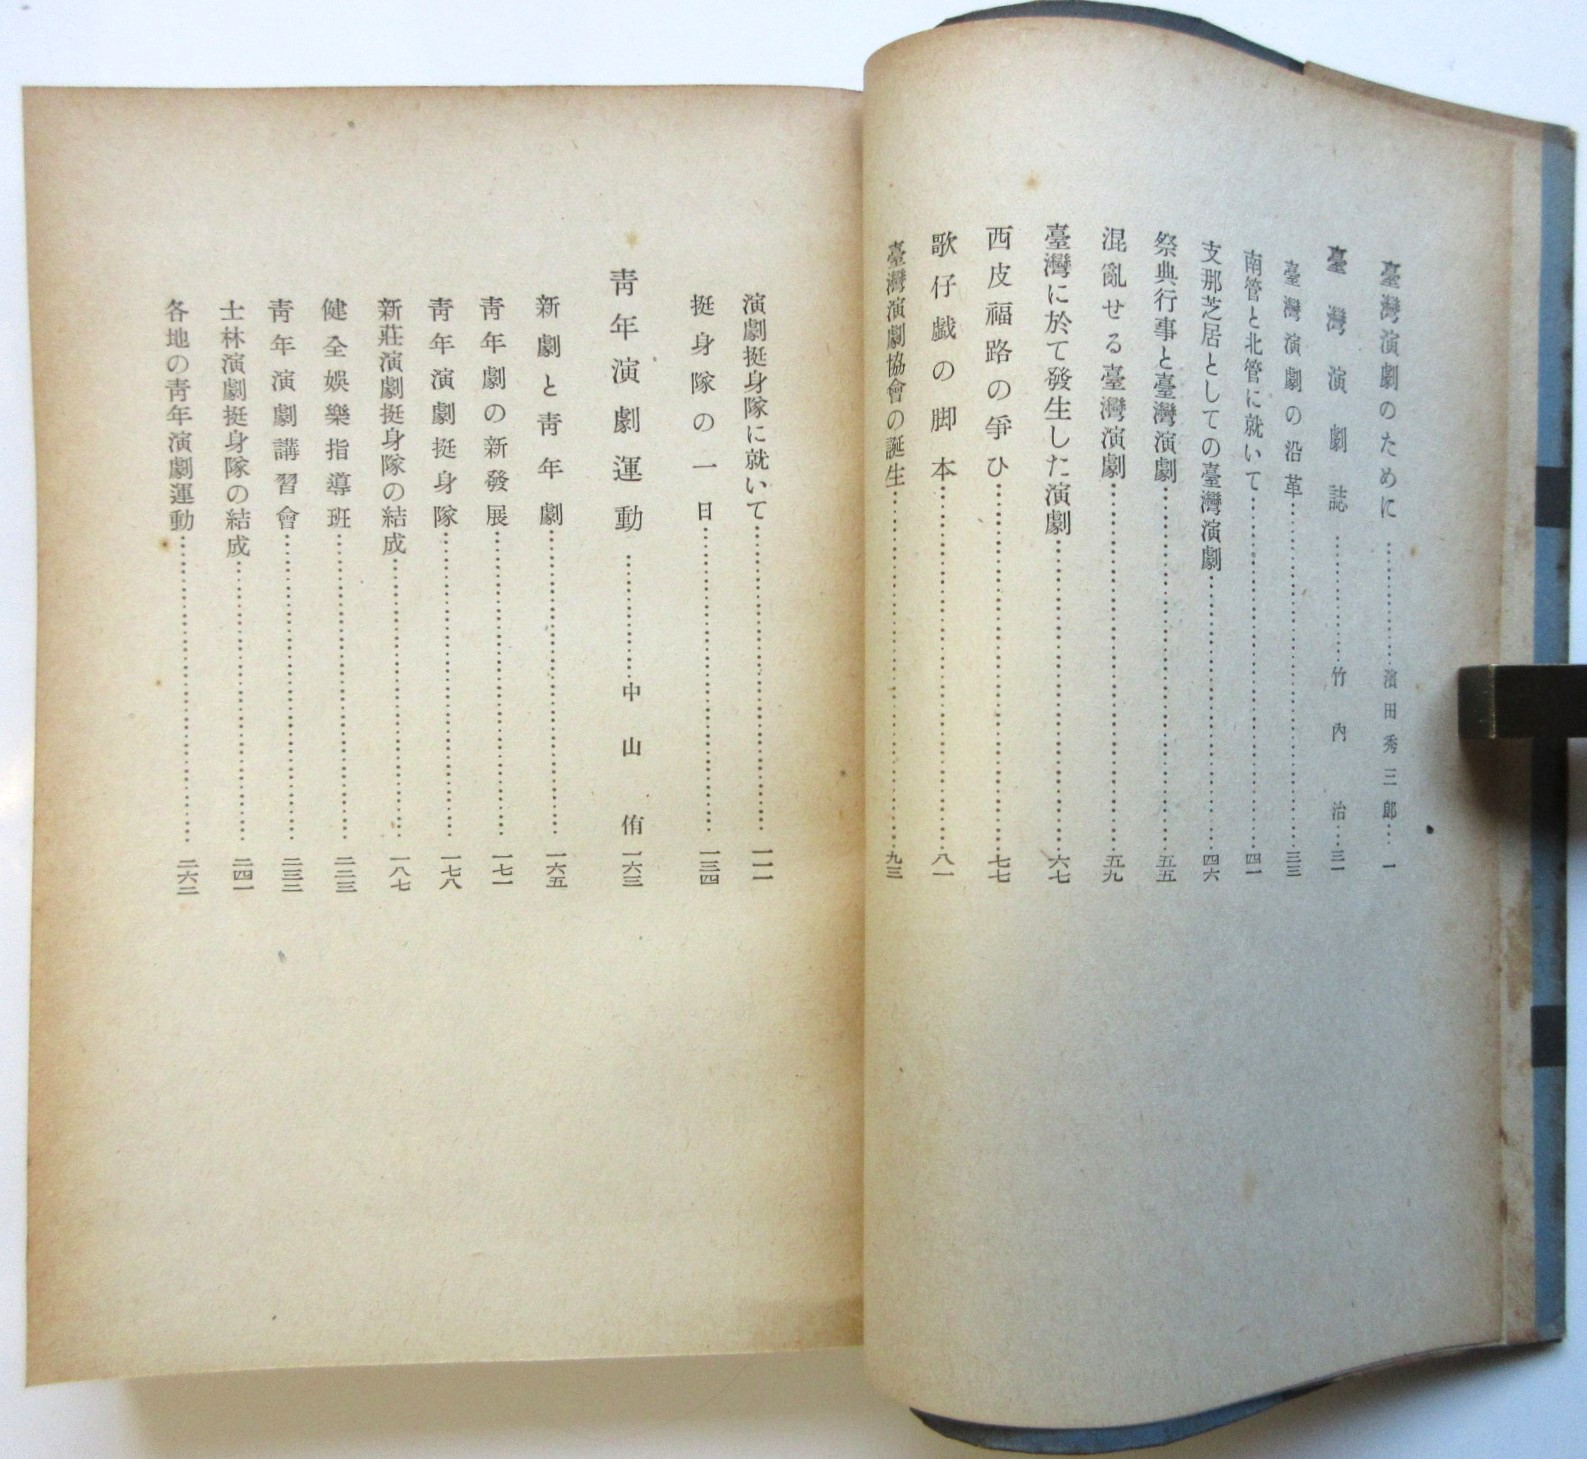 臺灣演劇のために……………濱田秀三郎…一
臺灣演劇誌……………竹內治…三一
臺灣演劇の沿革……………三三
南管と北管に就いて……………四一
支那芝居としての臺灣演劇……………四六
祭典行事と臺灣演劇……………五五
混亂せる臺灣演劇……………五九
臺灣に於て發生した演劇……………六七
西皮福路の爭ひ……………七七
歌仔戲の脚本……………八一
臺灣演劇協會の誕生……………九三
演劇挺身隊に就いて……………一一一
挺身隊の一日……………一三四
靑年演劇運動……………中山侑…一六三
新劇と靑年劇……………一六五
靑年劇の新發展……………一七一
靑年演劇挺身隊……………一七八
新莊演劇挺身隊の結成……………一八七
健全娛樂指導班……………二二三
靑年演劇講習會……………二三二
士林演劇挺身隊の結成……………二四一
各地の靑年演劇運動……………二六二